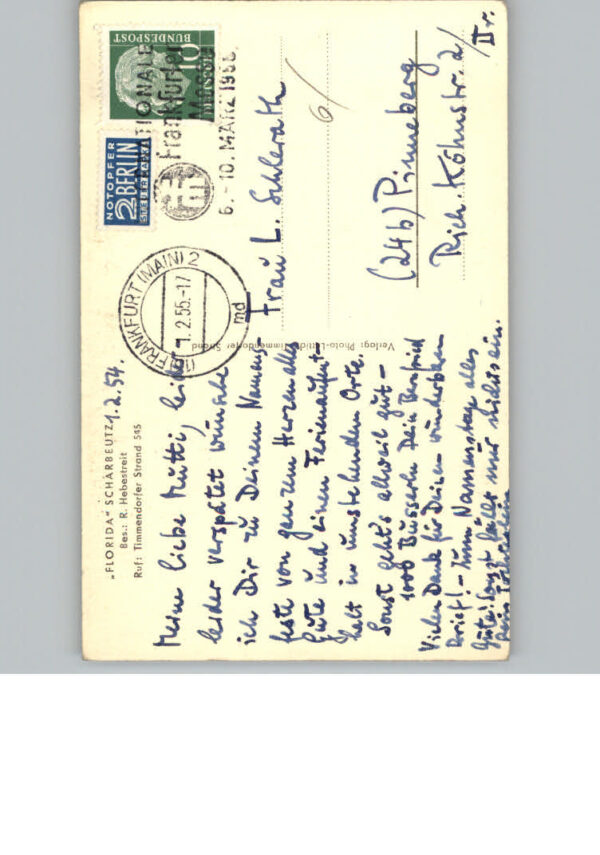 „FLORIDA“ SCHARBEUTZ
Bes.: R. Hebestreit
Ruf: Timmendorfer Strand 545
1.2.54.
Meine liebe Mutti, leider
leider verspätet wünsche
ich Dir zu Deinem Namens
feste von ganzem Herzen alles
Gute und einen Ferienaufent-
halt in umstehenden Orte.
Sonst geht's allweil gut –
1000 Busserln Dein
Vielen Dank für Deinen
Brief! – Zum Namenstag alles
Gute! Sonst fällt mir nichts ein.
Dein
Verlag: Photo-Lüttich, Timmendorfer Strand
BUNDESPOST
10
NOTOPFER
2 BERLIN
STEUERMARKE
Frankfurter
Messe
6.-10. MÄRZ 1955
FRANKFURT (MAIN) 2
1.2.55.-17
md
Frau L. Schlerath
6/
(24b) Pinneberg
Rich. Köhnstr. 2/
II r.